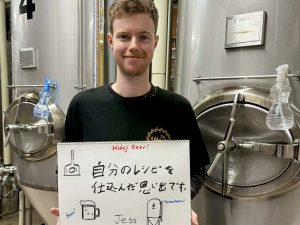 4
Hideji Beer!
自分のレシピを
仕込んだ思い出です。
Beer!
Fermentation!
Jess